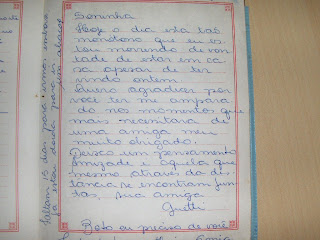 Soninha
Hoje o dia está tão
monótono que eu es
tou morrendo de von
tade de estar em ca
sa apesar de ter
vindo ontem.
Quero agradecer por
você ter me ampara
do nos momentos que
mais necessitava de
uma amiga meu
muito obrigado.
Deixo um pensamento
Amizade é aquela que
mesmo através da dis
tância se encontram jun
tas, sua amiga
Beto eu preciso de você
Faltam 15 dias para irmos embora